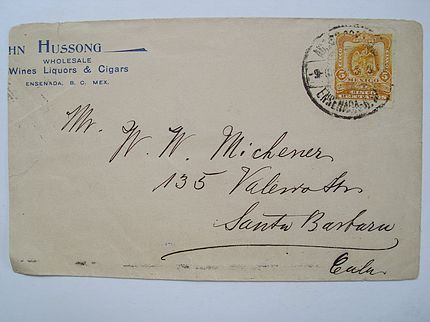 HN HUSSONG
WHOLESALE
Wines Liquors & Cigars
ENSENADA, B. C. MEX.
5 5
CINCO
ENSENADA-B.
Mr. W. W. Michener
135 Valerio Str
Santa Barbara
Cala.